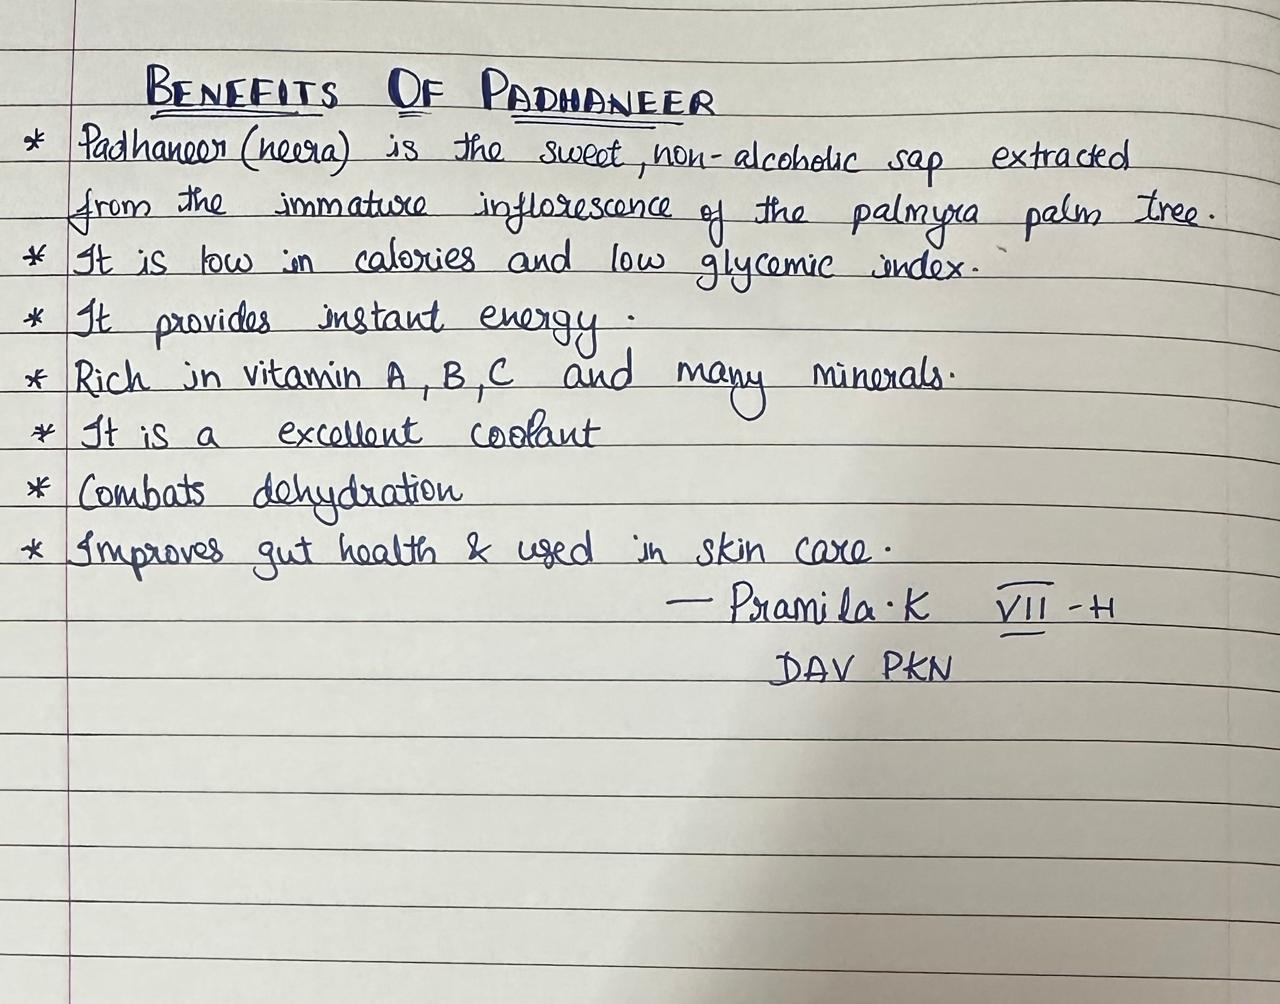 BENEFITS OF PADHANEER
* Padhaneer (neera) is the sweet, non-alcoholic sap extracted
from the immature inflorescence of the palmyra palm tree.
* It is low in calories and low glycemic index.
* It provides instant energy.
* Rich in vitamin A, B, C and many minerals.
* It is a excellent coolant
* Combats dehydration
* Improves gut health & used in skin care.
— Pramila.K VII - H
DAV PKN